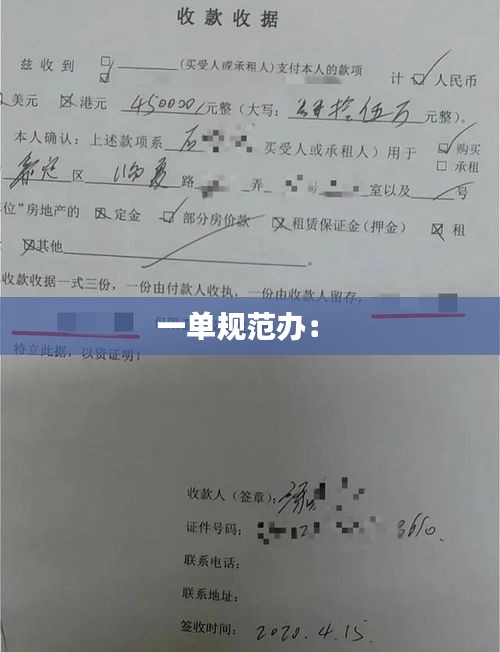 收款收据
兹收到 (买受人或承租人)支付本人的款项 计 人民币
美元 港元 450000/元整(大写: 肆拾伍万 元整)。
本人确认:上述款项系 石 买受人或承租人)用于 购买
承租
区 路 弄 室以及 号
位"房地产的 定金 部分房价款 租赁保证金(押金) 租
其他
收款收据一式三份,一份由付款人收执,一份由收款人留存,
一单规范办:
特立此据,以资证明!
收款人(签章):
证件号码: 3650.
联系电话:
联系地址:
签收时间: 2020.4.15.